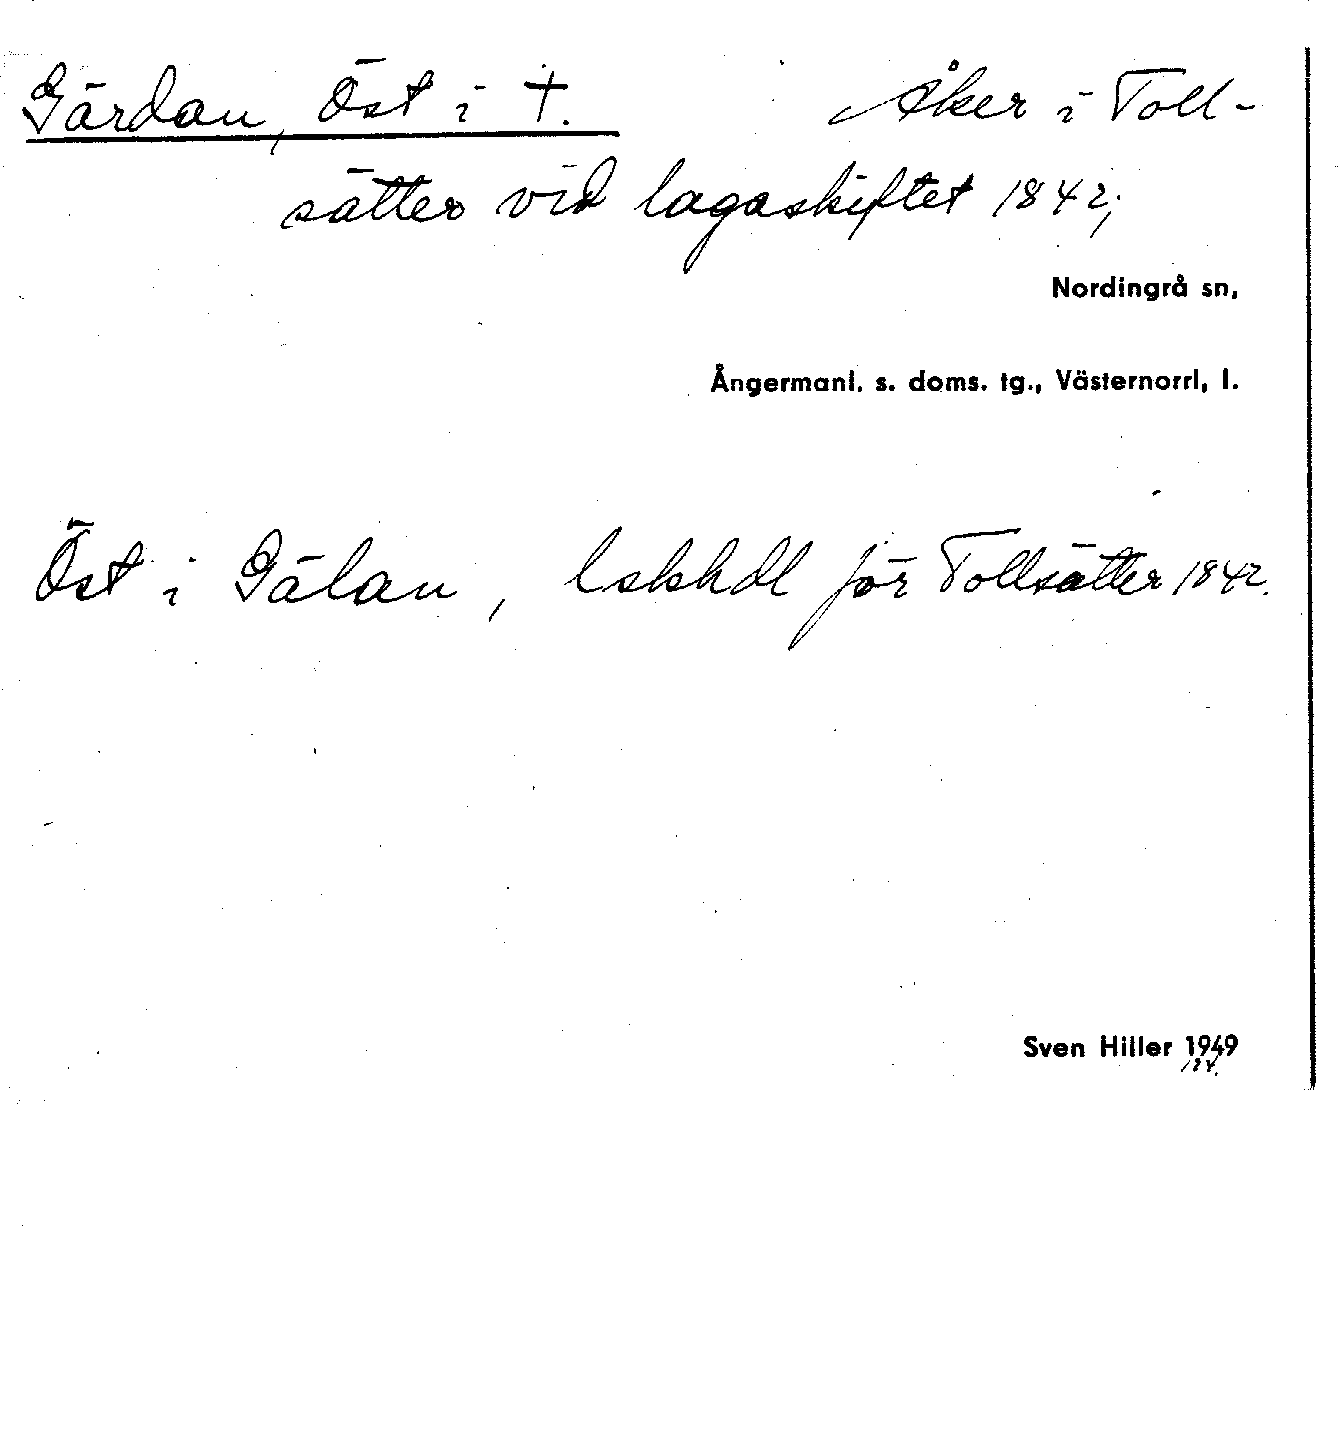 Gärdan, Öst i †. Åker i Toll-
sätter vid lagaskiftet 1842;
Nordingrå sn,
Ångermanl. s. doms. tg., Västernorrl, l.
Öst i Gälan, lskhdl för Tollsätter 1842.
Sven Hiller 1949